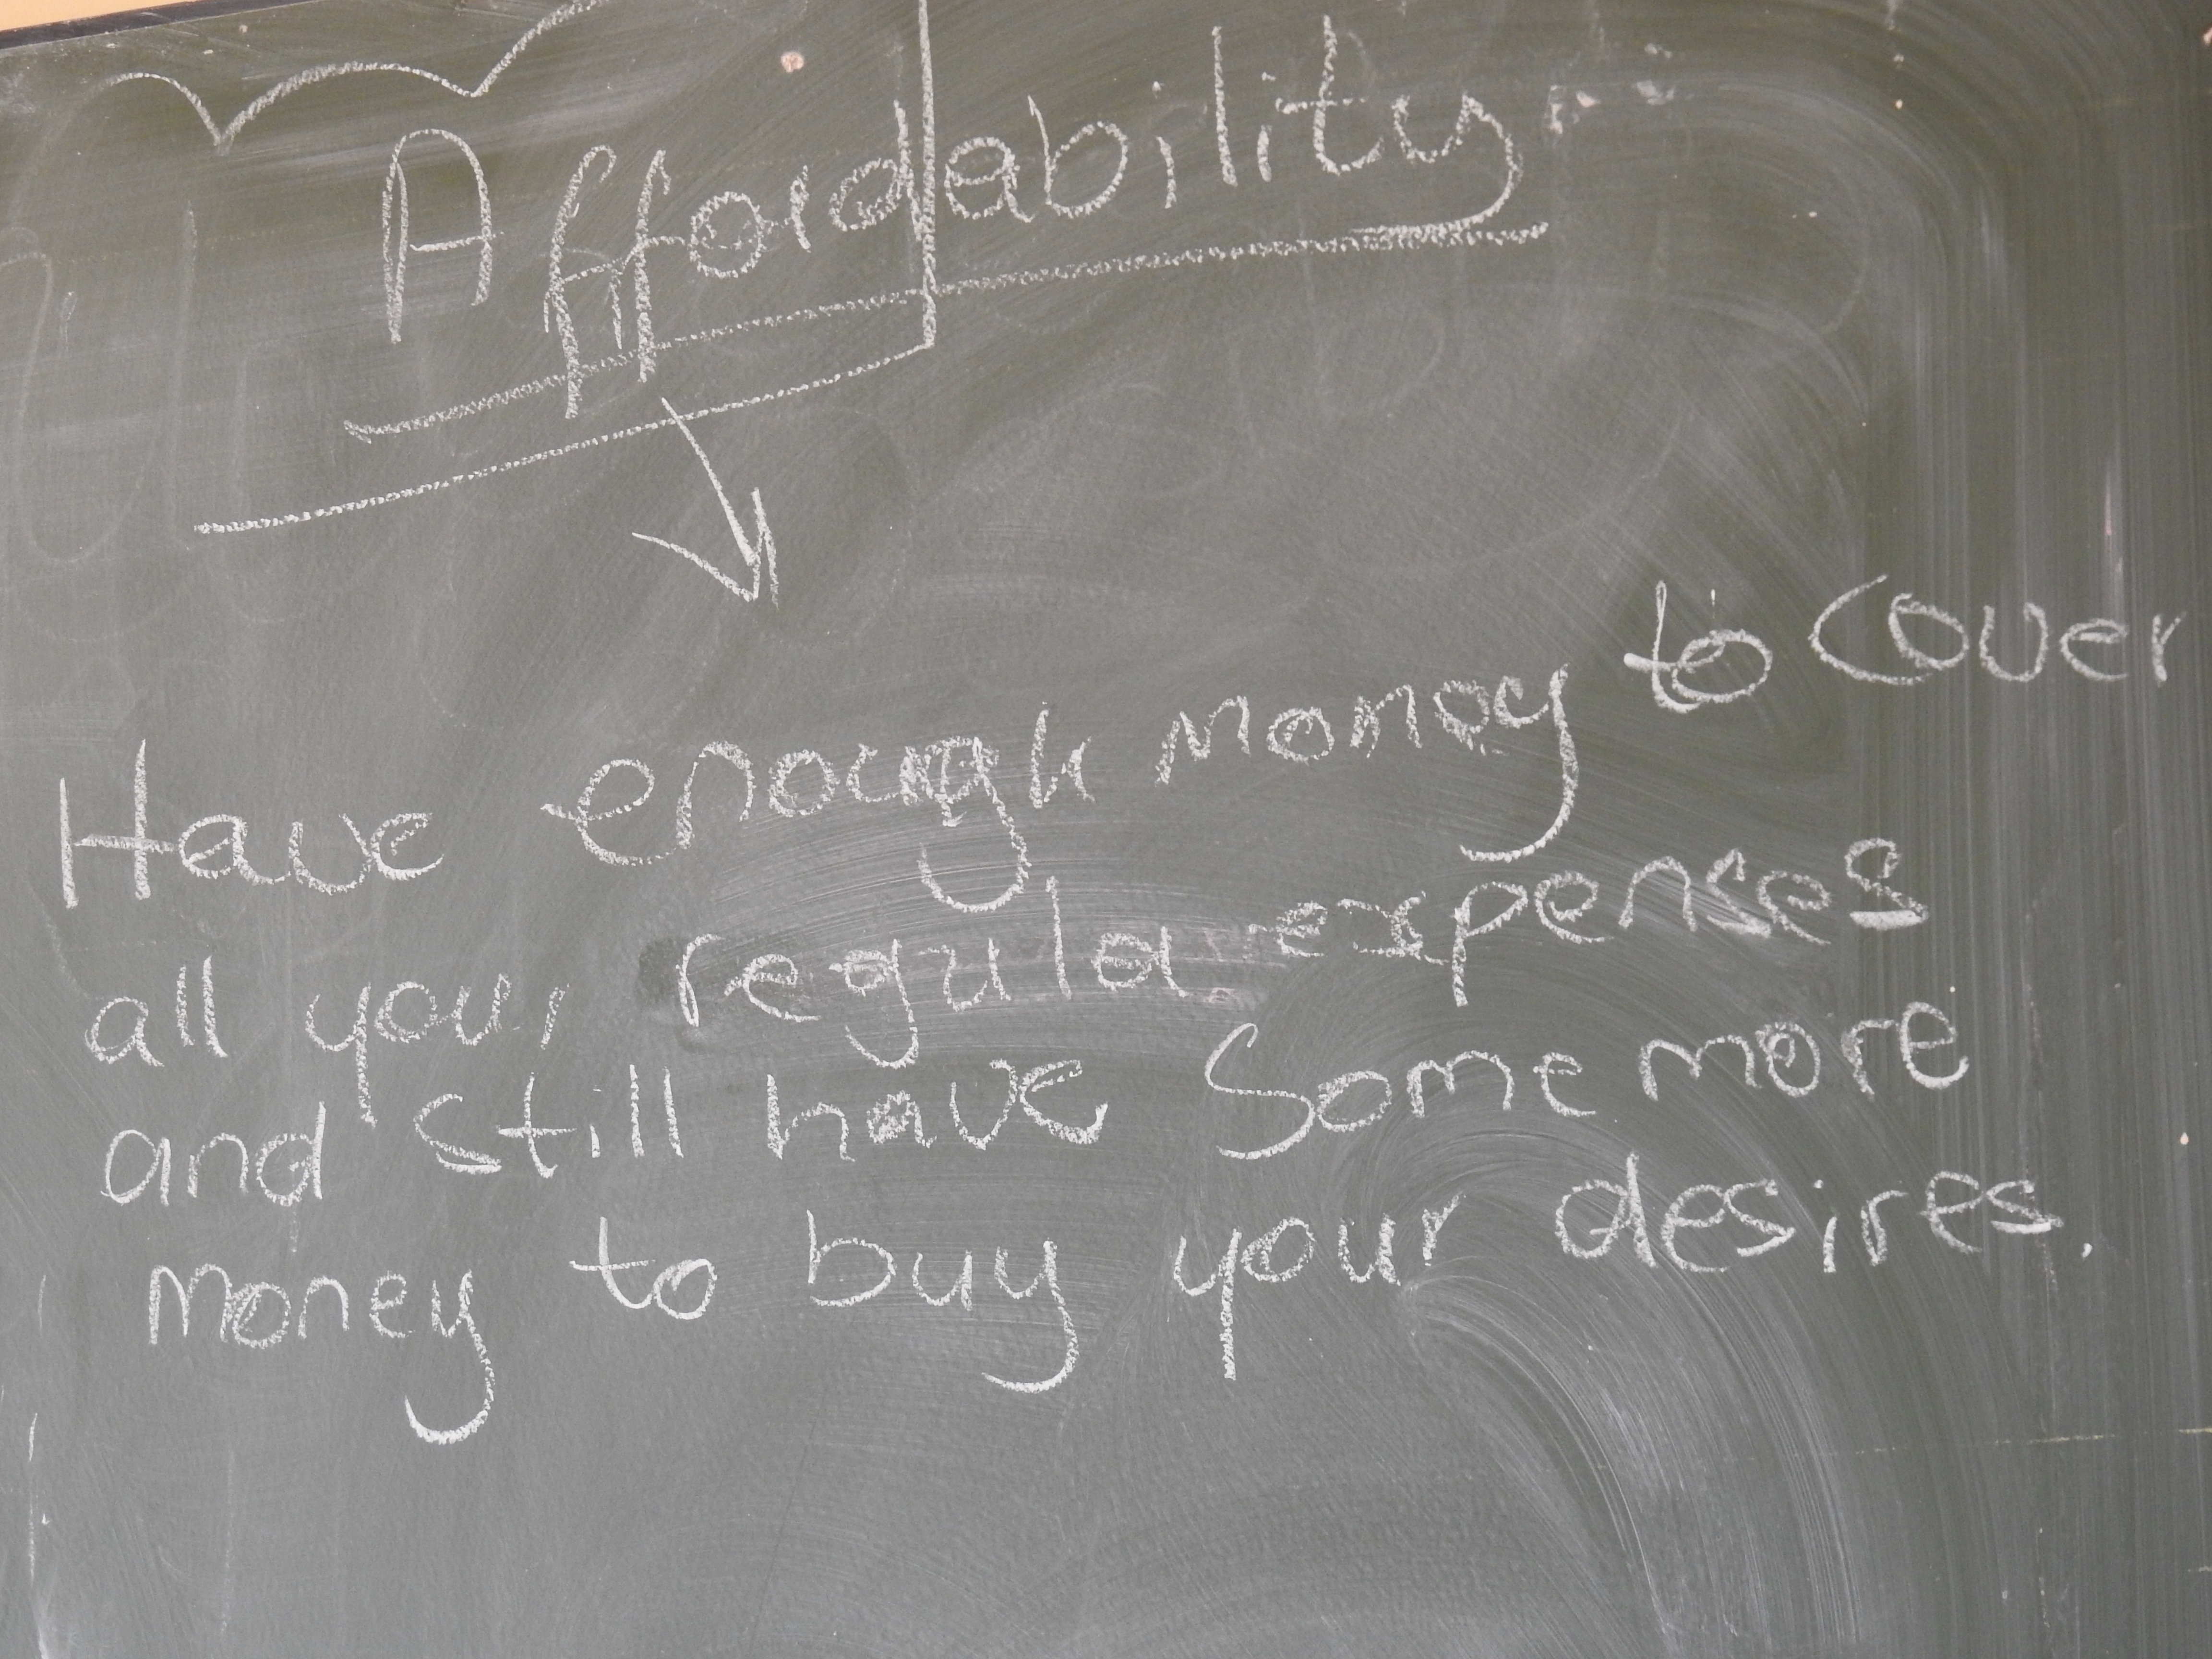 Affordability
Have enough money to cover
all your regula expenses
and still have Some more
money to buy your desires.